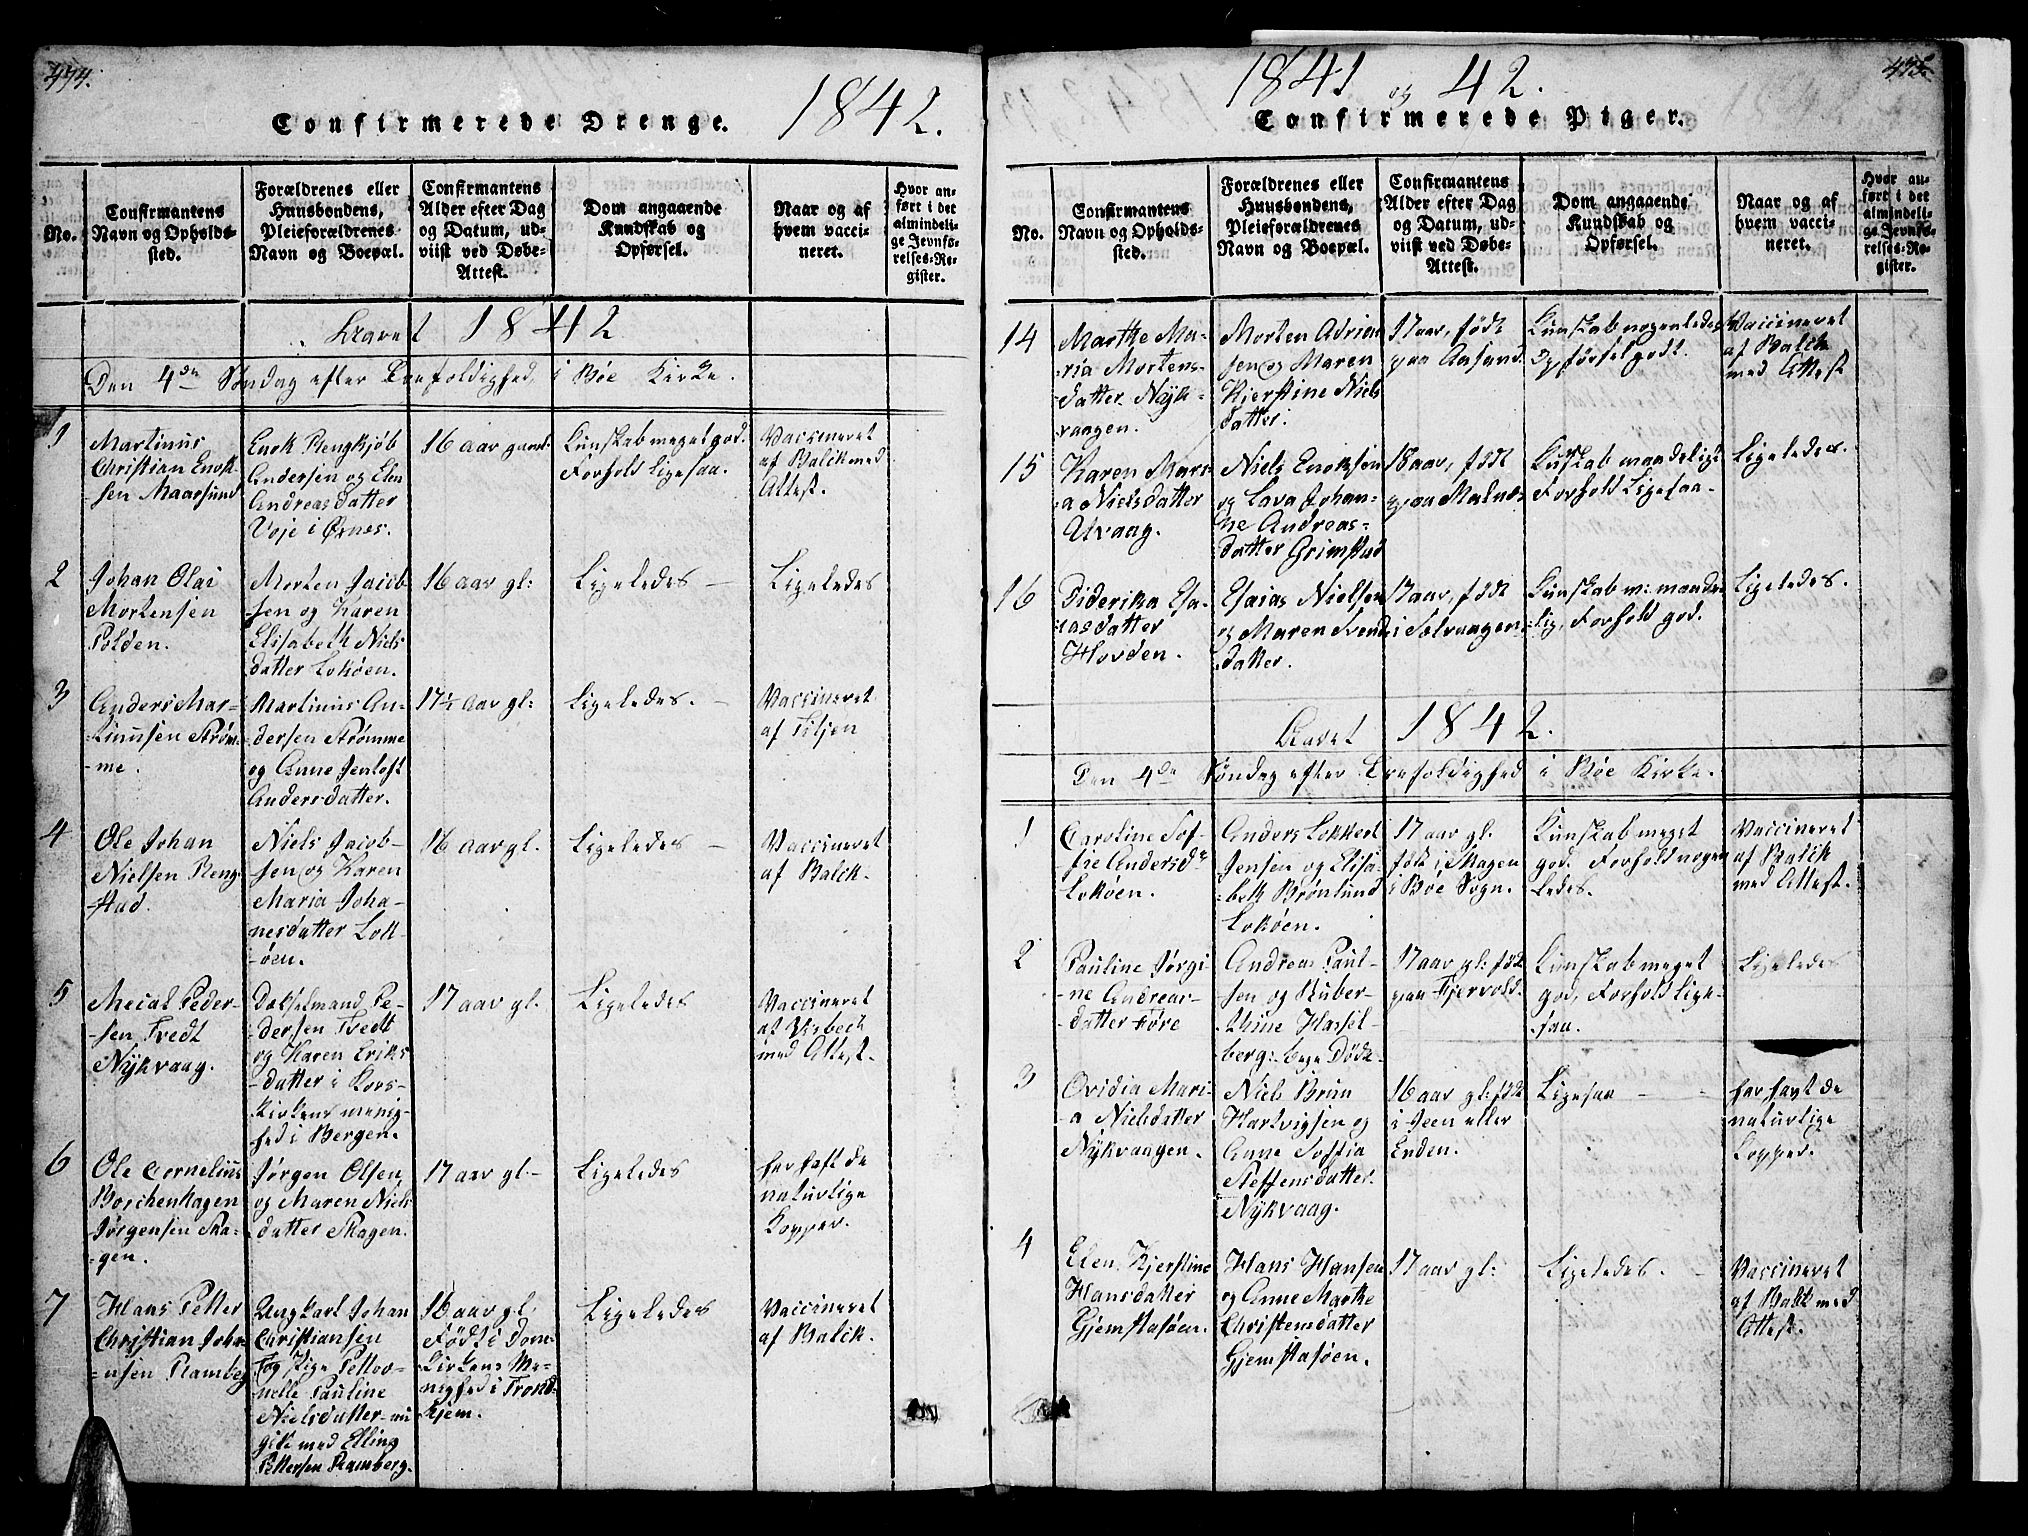 474.
Confirmerede Drenge. 1842.
No.
Confirmantens
Navn og Opholds-
sted.
Forældrenes eller
Huusbondens,
Pleieforældrenes
Navn og Boepæl.
Confirmantens
Alder efter Dag
og Datum, ud-
viist ved Døbe-
Attest.
Dom angaaende
Kundskab og
Opførsel.
Naar og af
hvem vacci-
neret.
Hvor an-
ført i det
almindeli-
ge Jevnfø-
relses-Re-
gister.
Aaret 1842
Den 4de Søndag efter Trefoldighed i Bøe Kirke.
1
Martinus
Christian Enok-
sen Maarsund
Enok Rengkjøb
Andersen og Elen
Andreasdatter
Voje i Ørnes.
16 aar gaml.
Kunskab meget god.
Forhold ligesaa.
Vaccineret
af Balik med
Attest.
2
Johan Olai
Mortensen
Polden.
Morten Jacob-
sen og Karen
Elisabeth Niels
datter Lokøen.
16 aar gl:
Ligeledes
Ligeledes
3
Anders Mar-
tinusen Strøm-
me.
Martinus An-
dersen Strømme
og Anne Jentoft
Andersdatter.
17½ aar gl:
Ligeledes.
Vaccineret
af Tiljen
4
Ole Johan
Nielsen Reng-
stad.
Niels Jacob-
sen og Karen
Maria Joha-
nesdatter Lok-
øen.
16 aar gl.
Ligeledes
Vaccineret
af Balik.
5
Mecal Peder-
sen Tvedt
Nÿkvaag.
Pe-
dersen Tvedt
og Karen Eriks
datter i Kors-
kirkens menig-
hed i Bergen.
17 aar gl.
Ligeledes
Vaccineret
af Visbech
med Attest.
6
Ole Cornelius
Boschenhagen
Jørgensen Ska-
gen.
Jørgen Olsen
og Maren Niels
datter Skagen.
17 aar gl
Ligeledes
har haft de
naturlige
Kopper.
7
Hans Petter
Christian Johan
nsen Ramberg
Ungkarl Johan
Christiansen
og Pige Petro-
nelle Pauline
Nielsdatter nu
gift med Elling
Pettersen Ramberg.
16 aar gl,
Født i Dom-
kirkens Me-
nighed i Trond-
hjem.
Ligeledes
Vaccineret
af Balik.
475
1841 og 42.
Confirmerede Piger.
No.
Confirmantens
Navn og Opholds-
sted.
Forældrenes eller
Huusbondens,
Pleieforældrenes
Navn og Boepæl.
Confirmantens
Alder efter Dag
og Datum, ud-
viist ved Døbe-
Attest.
Dom angaaende
Kundskab og
Opførsel.
Naar og af
hvem vacci-
neret.
Hvor an-
ført i det
almindeli-
ge Jevnfø-
relses-Re-
gister.
14
Marthe Ma-
ria Mortens-
datter Nÿk-
vaagen.
Morten Adrian
sen og Maren
Kjerstine Niels
datter.
17 aar, født
paa Aasand.
Kunskab nogenledes
Opførsel godt.
Vaccineret
af Balik
med Attest
15
Karen Mari-
a Nielsdatter
Utvaag.
Niels Enoksen
og Lava Johan-
ne Andreas-
datter Grimstad
18 aar, født
paa Malnes
Kunskab maadelig
Forhold Ligesaa.
Ligeledes.
16
Diderika Esa-
iasdatter
Hovden.
Esaias Nielsen
og Maren Svend
datter.
17 aar, født
i Solvaagen.
Kunskab m: maade-
lig, Forhold god.
Ligeledes.
Aaret 1842.
Den 4de Søndag efter Trefoldighed i Bøe Kirke.
1
Caroline Sof-
fie Andersdr
Lokøen.
Anders Lokkert
Jensen og Elisa-
beth Brønlund
Lokøen.
17 aar gl.
født i Skagen
i Bøe Sogn.
Kunskab meget
god. Forhold nogen
ledes.
Vaccineret
af Balik
med Attest.
2
Pauline Jørgi-
ne Andreas-
datter Føre
Andreas Paul-
sen og Huber-
thine Hassel-
berg: bege Døde
17 aar gl: født
paa Fjærvold.
Kunskab meget
god, Forhold lige-
saa.
Ligeledes
3
Ovidia Mari-
a Nielsdatter
Nÿkvaagen.
Niels Brun
Hartvigsen og
Anne Soffia
Steffensdatter
Nÿkvaag.
16 aar gl: født
i Steen eller
Enden.
Ligesaa
har havt de
naturlige
Kopper.
4
Elen Kjerstine
Hansdatter
Gjemstasøen.
Hans Hansen
og Anne Marthe
Christensdatter
Gjemstasøen.
17 aar gl:
Ligeledes.
Vaccineret
af Balik med
Attest.